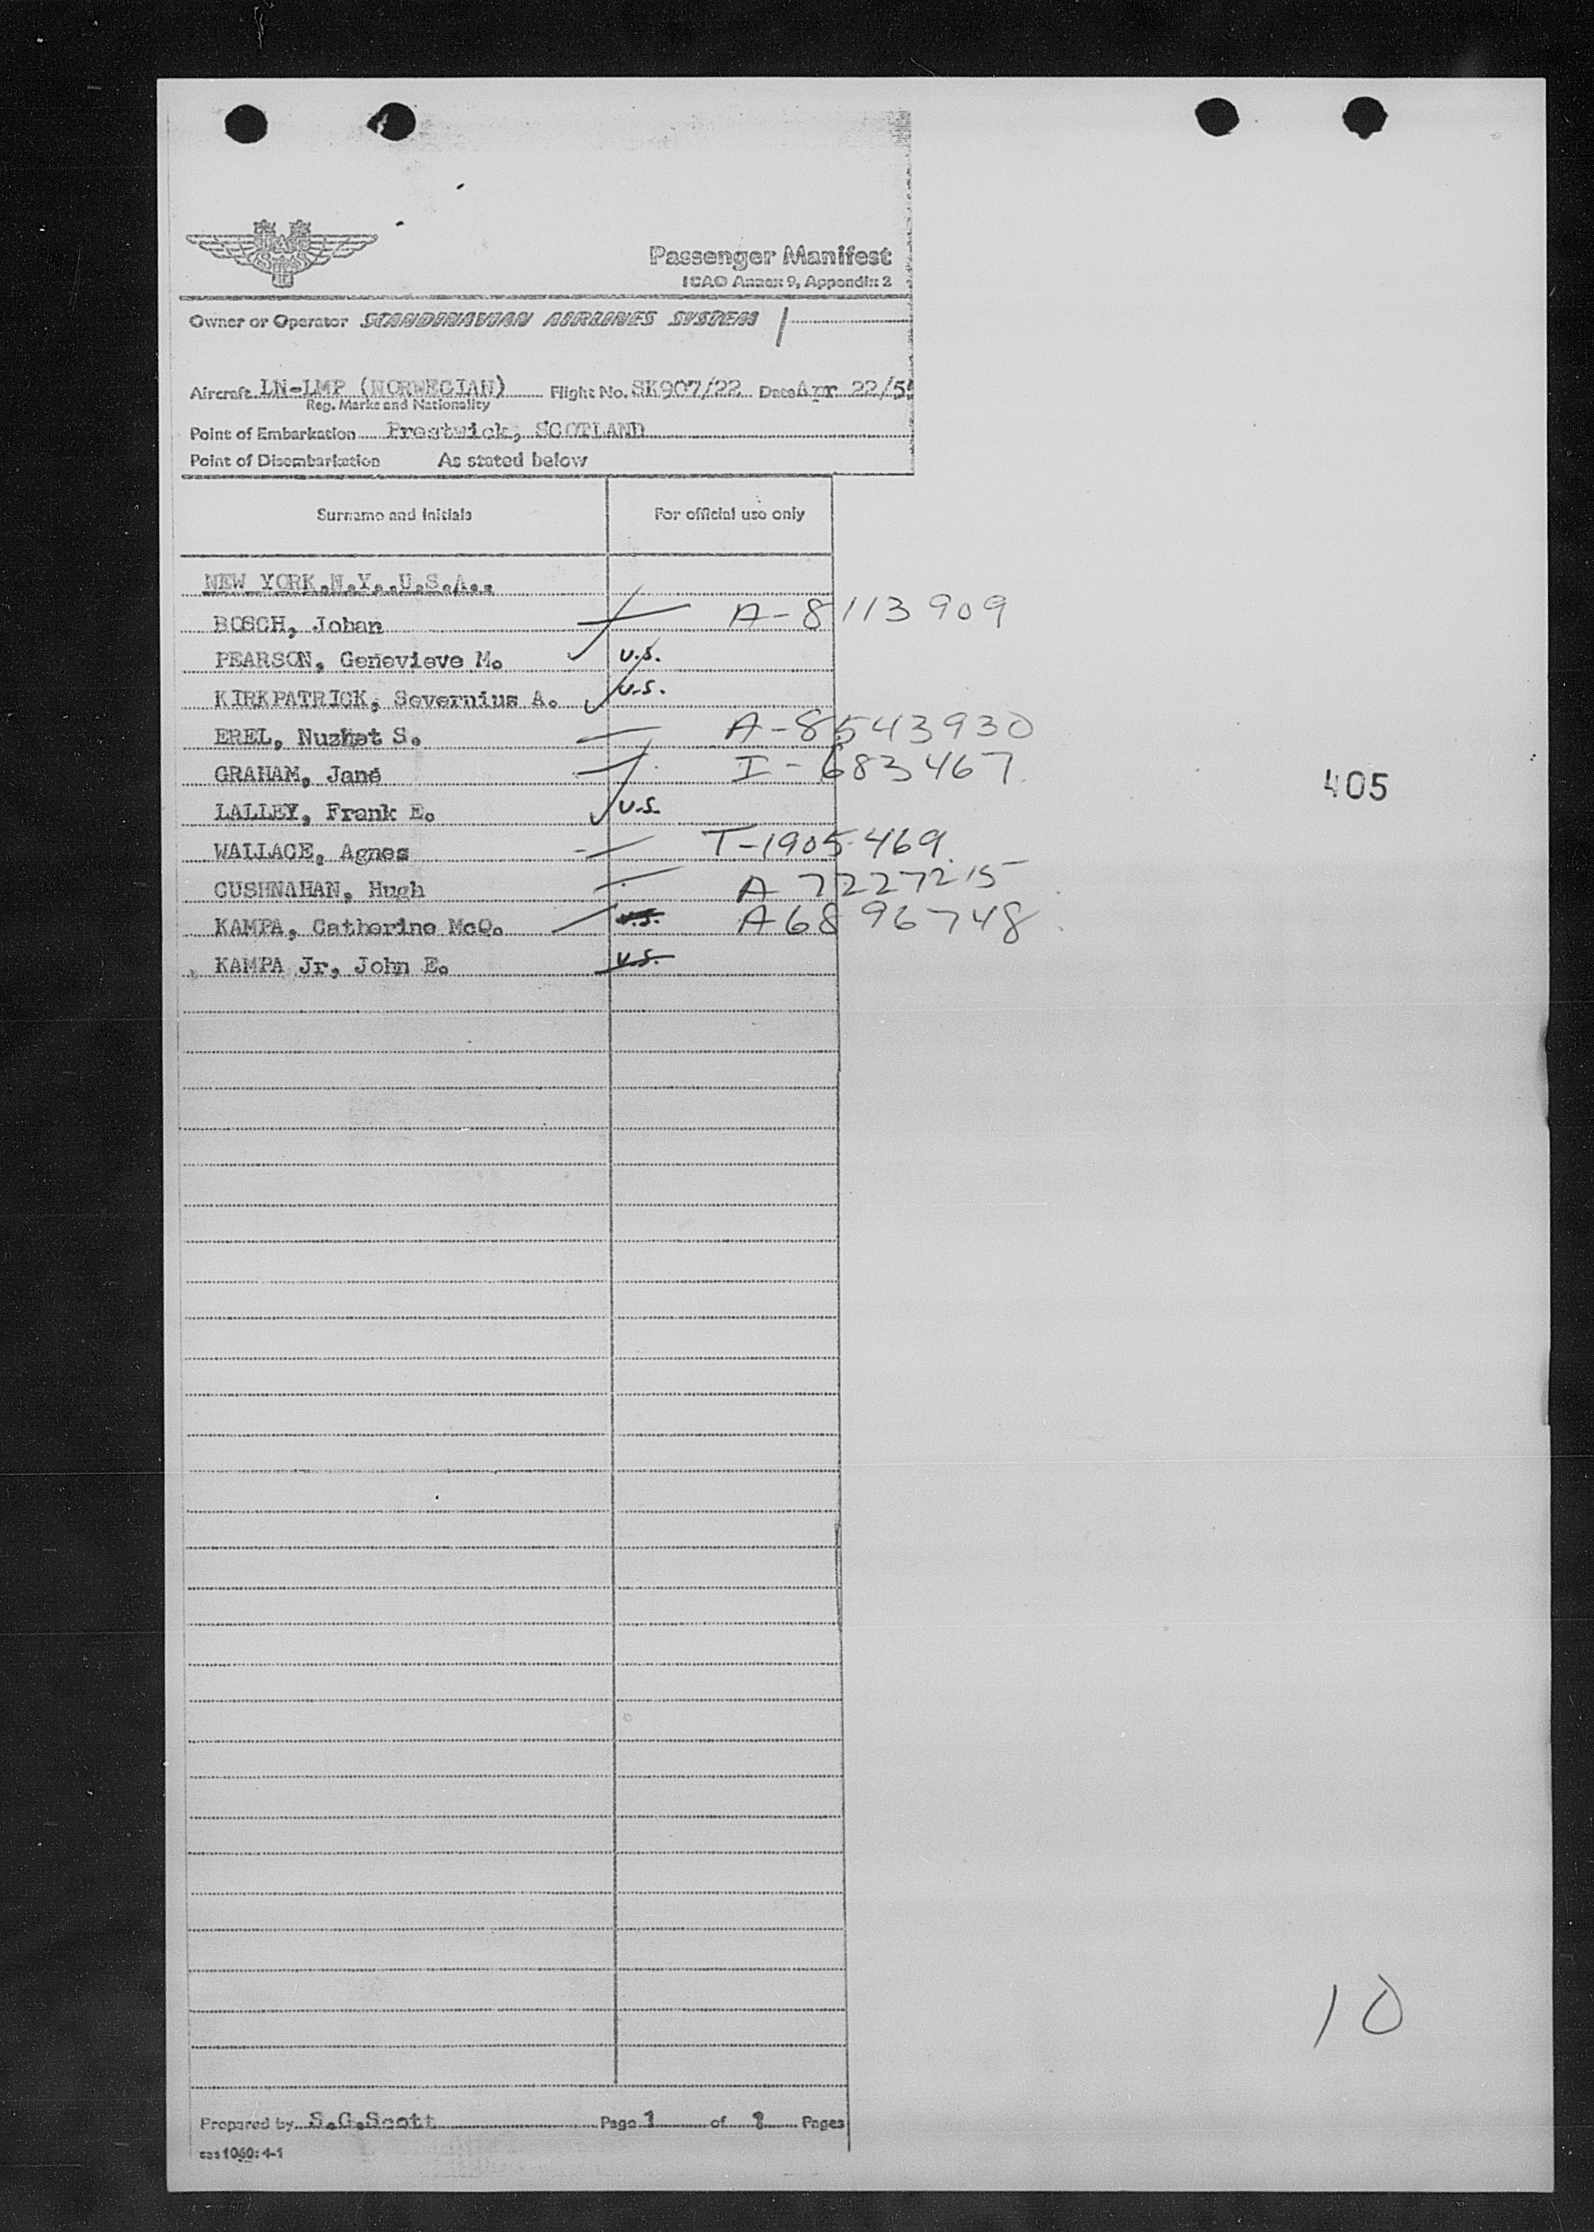 Passenger Manifest
ICAO Annex 9, Appendix 2
Owner or Operator SCANDINAVIAN AIRLINES SYSTEM
Aircraft LN-LMP (NORWEGIAN) Flight No. SK907/22 Date Apr 22/5
Reg. Marks and Nationality
Point of Embarkation Prestwick, SCOTLAND
Point of Disembarkation As stated below
Surname and Initials For official use only
NEW YORK,N.Y.,U.S.A..
BOSCH, Johan A-8113909
PEARSON, Genevieve M. U.S.
KIRKPATRICK, Severnius A. U.S.
EREL, Nuzhet S. A-8543930
GRAHAM, Jane I-683467
405
LALLEY, Frank E. U.S.
WALLACE, Agnes T-1905469
CUSHNAHAN, Hugh A 7227215
KAMPA, Catherine McQ. U.S. A6896748
KAMPA Jr, John E. U.S.
10
Prepared by S.G.Scott Page 1 of Pages
sas 1060: 4-1